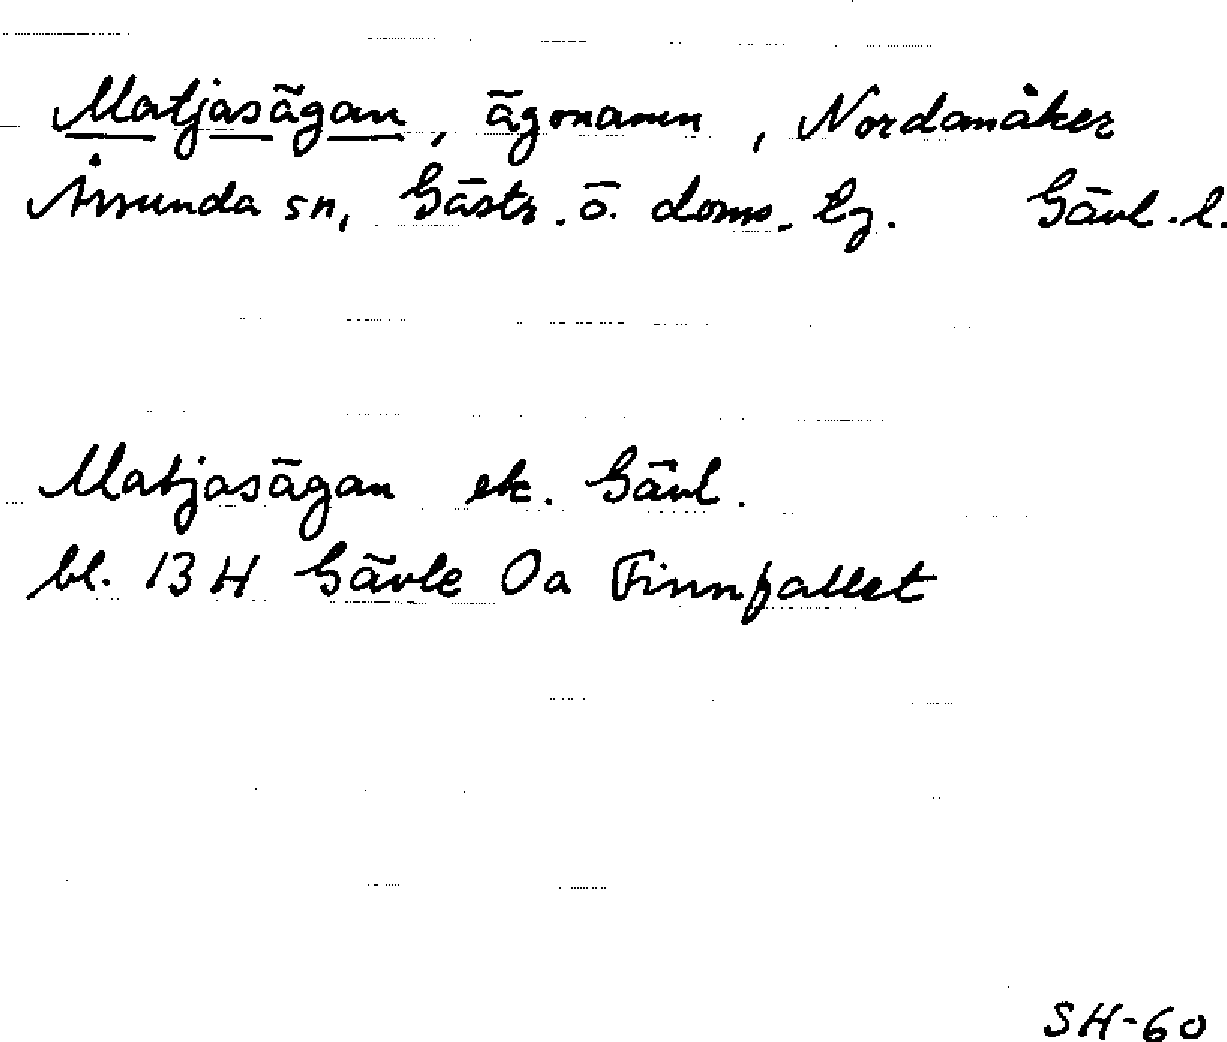 Matjasägan, ägonamn, Nordanåker
Årsunda sn, Gästr. ö. doms. Lg. Gävl. l.
Matjasägan ek. Gävl.
bl. 13 H Gävle 0a Finnfallet
SH-60